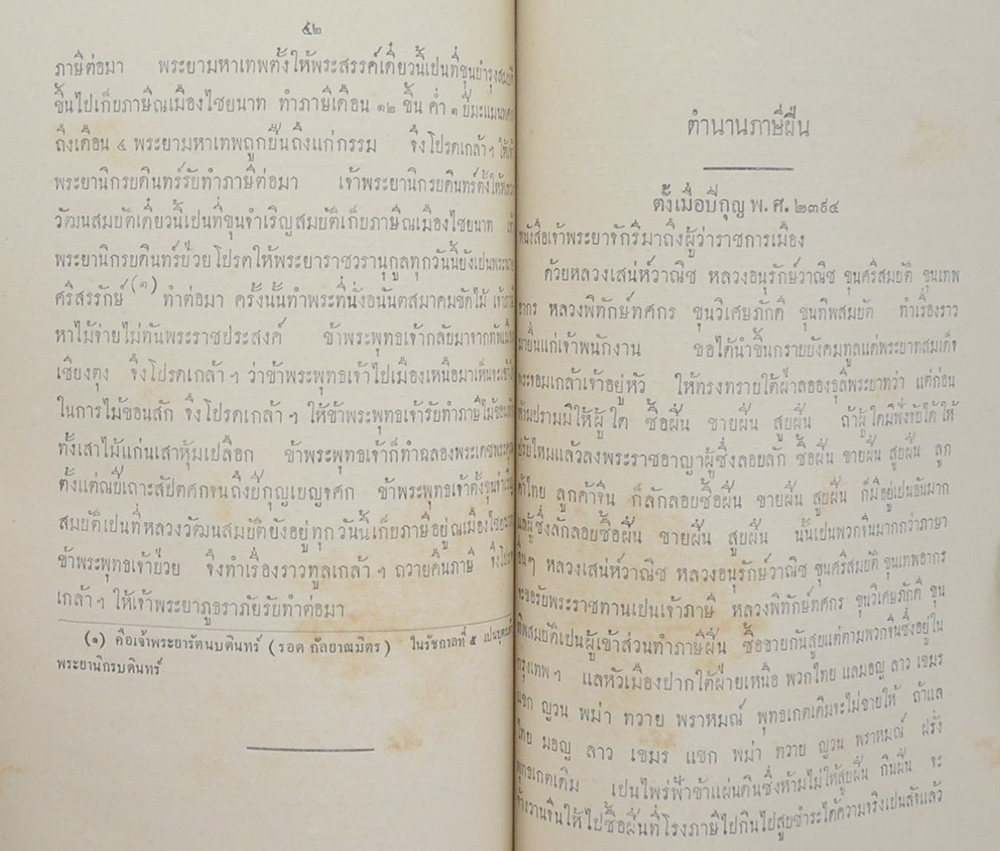 ๕๒
ภาษีต่อมา พระยามหาเทพตั้งให้พระสรรค์เดี๋ยวนี้เปนที่ขุนบำรุงสมบัติ
ขึ้นไปเก็บภาษีณเมืองไชยนาท ทำภาษีเดือน ๑๒ ขึ้น ค่ำ ๑ ปีมะแมนพศก
ถึงเดือน ๔ พระยามหาเทพถูกปืนถึงแก่กรรม จึงโปรดเกล้าฯ ให้เจ้า
พระยานิกรบดินทร์รับทำภาษีต่อมา เจ้าพระยานิกรบดินทร์ตั้งให้หลวง
วัฒนสมบัติเดี๋ยวนี้เปนที่ขุนจำเริญสมบัติเก็บภาษีณเมืองไชยนาท เจ้า
พระยานิกรบดินทร์ป่วยโปรดให้พระยาราชวรานุกูลทุกวันนี้ยังเปนพระนาย
ศรีสรรักษ์ (๑) ทำต่อมา ครั้งนั้นทำพระที่นั่งอนันตสมาคมขัดไม้ เจ้าภาษี
หาไม้จ่ายไม่ทันพระราชประสงค์ ข้าพระพุทธเจ้ากลับมาจากทัพเมือง
เชียงตุง จึงโปรดเกล้าฯ ว่าข้าพระพุทธเจ้าไปเมืองเหนือมาเห็นจะเข้าใจ
ในการไม้ขอนสัก จึงโปรดเกล้าฯ ให้ข้าพระพุทธเจ้ารับทำภาษีไม้ขอนสัก
ทั้งเสาไม้แก่นเสาหุ้มเปลือก ข้าพระพุทธเจ้าก็ทำฉลองพระเดชพระคุณ
ตั้งแต่ณปีเถาะสัปตศกจนถึงปีกุญเบญจศก ข้าพระพุทธเจ้าตั้งขุนจำเริญ
สมบัติเปนที่หลวงวัฒนสมบัติยังอยู่ทุกวันนี้เก็บภาษีอยู่ณเมืองไชยนาท
ข้าพระพุทธเจ้าป่วย จึงทำเรื่องราวทูลเกล้าฯ ถวายคืนภาษี จึงโปรด
เกล้าฯ ให้เจ้าพระยาภูธราภัยรับทำต่อมา
(๑) คือเจ้าพระยารัตนบดินทร์ (รอด กัลยาณมิตร) ในรัชกาลที่ ๕ เปนบุตรเจ้า
พระยานิกรบดินทร์
ตำนานภาษีฝิ่น
ตั้งเมื่อปีกุญ พ.ศ. ๒๓๙๔
หนังสือเจ้าพระยาจักรีมาถึงผู้ว่าราชการเมือง
ด้วยหลวงเสน่ห์วาณิช หลวงอนุรักษ์วาณิช ขุนศรีสมบัติ ขุนเทพ
อากร หลวงพิทักษ์ทศกร ขุนวิเศษภักดี ขุนทิพสมบัติ ทำเรื่องราว
มายื่นแก่เจ้าพนักงาน ขอได้นำขึ้นกราบบังคมทูลแด่พระบาทสมเด็จ
พระจอมเกล้าเจ้าอยู่หัว ให้ทรงทราบใต้ฝ่าลอองธุลีพระบาทว่า แต่ก่อน
ห้ามปรามมิให้ผู้ใด ซื้อฝิ่น ขายฝิ่น สูบฝิ่น ถ้าผู้ใดมิฟังจับได้ ให้
ปรับไหมแล้วลงพระราชอาญาผู้ซึ่งลอบลัก ซื้อฝิ่น ขายฝิ่น สูบฝิ่น ลูก
ค้าไทย ลูกค้าจีน ก็ลักลอบซื้อฝิ่น ขายฝิ่น สูบฝิ่น ก็มีอยู่เปนอันมาก
แลผู้ซึ่งลักลอบซื้อฝิ่น ขายฝิ่น สูบฝิ่น นั้นเปนพวกจีนมากกว่าภาษา
อื่นๆ หลวงเสน่ห์วาณิช หลวงอนุรักษ์วาณิช ขุนศรีสมบัติ ขุนเทพอากร
จะขอรับพระราชทานเปนเจ้าภาษี หลวงพิทักษ์ทศกร ขุนวิเศษภักดี ขุน
ทิพสมบัติเปนผู้เข้าส่วนทำภาษีฝิ่น ซื้อขายกันสูบแต่ตามพวกจีนซึ่งอยู่ใน
กรุงเทพฯ แลหัวเมืองปากใต้ฝ่ายเหนือ พวกไทย แลมอญ ลาว เขมร
แขก ญวน พม่า ทวาย พราหมณ์ พุทธเกตเดิมจะไม่ขายให้ ถ้าแล
ไทย มอญ ลาว เขมร แขก พม่า ทวาย ญวน พราหมณ์ ฝรั่ง
พุทธเกตเดิม เปนไพร่ฟ้าข้าแผ่นดินซึ่งห้ามไม่ให้สูบฝิ่น กินฝิ่น จะ
จ้างวานจีนให้ไปซื้อฝิ่นที่โรงภาษีไปกินไปสูบชำระได้ความจริงเปนสัจแล้ว